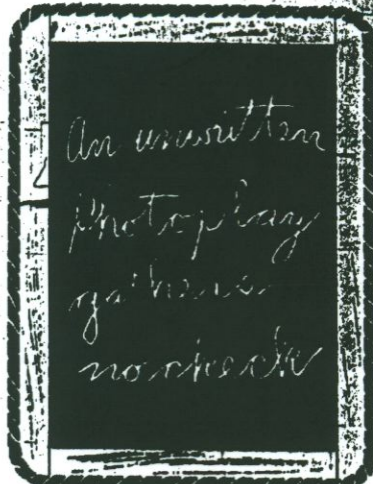 An unwritten
Photoplay
gathers
no check